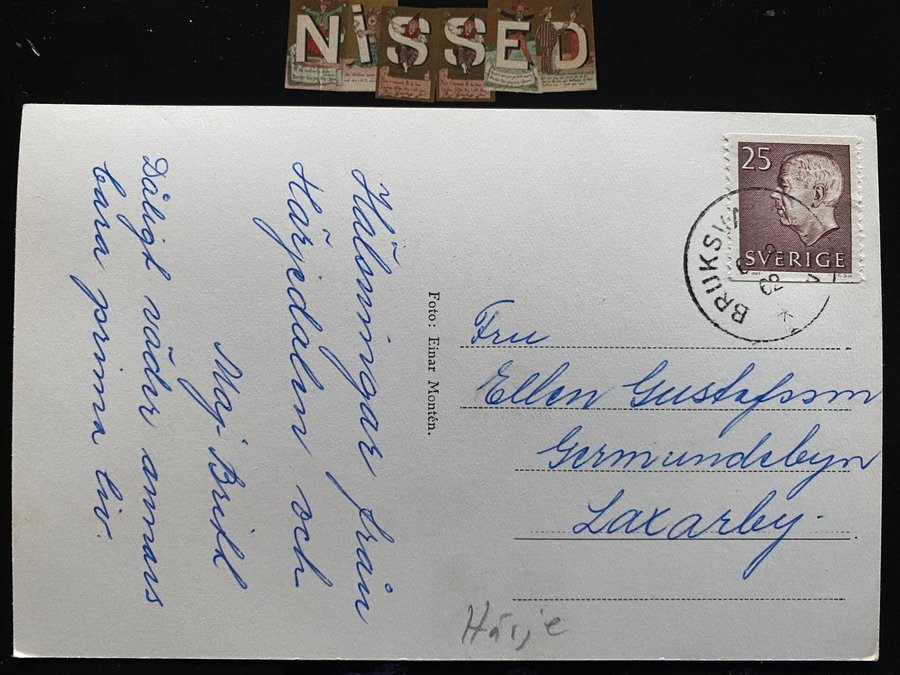 NISSED
25
SVERIGE
BRUKSVA
62
Hälsningar från
Härjedalen och
Maj-Britt
Dåligt väder annars
bara prima liv.
Foto: Einar Montén.
Fru
Ellen Gustafsson
Germundebyn
Laxarby.
Härje